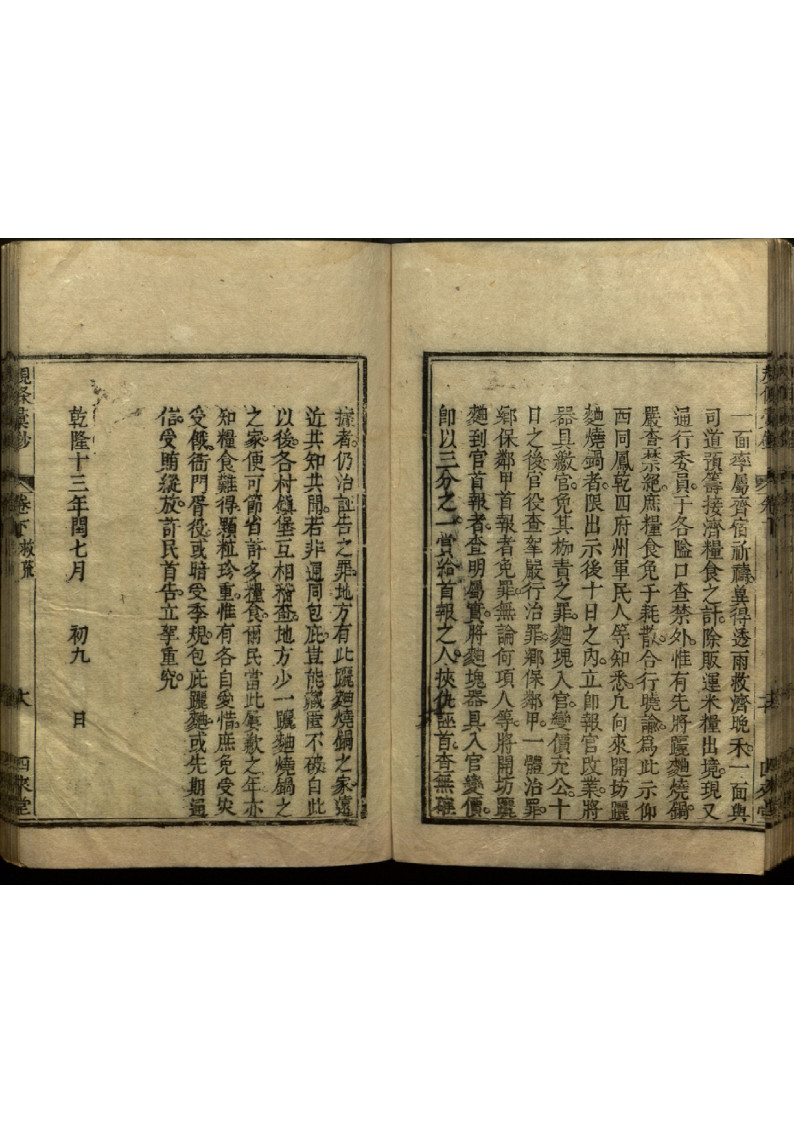 一面率屬齊宿祈禱兾得透雨救濟晚禾一面與
司道預籌接濟糧食之計除販運米糧出境現又
通行委員于各隘口查禁外惟有先將躧麯燒鍋
嚴查禁絕庶糧食免于耗散合行曉諭爲此示仰
西同鳳乾四府州軍民人等知悉凢向來開坊躧
麯燒鍋者限出示後十日之內立卽報官改業將
器具繳官免其枷責之罪麯塊入官變價充公十
日之後官役查拏嚴行治罪鄉保鄰甲一體治罪
鄉保鄰甲首報者免罪無論何項人等將開坊躧
麯到官首報者查明屬實將麯塊器具入官變價
卽以三分之一賞給首報之人挾仇誣首查無確
據者仍治誣告之罪地方有此躧麯燒鍋之家遠
近共知共聞若非通同包庇豈能藏匿不破自此
以後各村鎭堡互相稽查地方少一躧麯燒鍋之
之家便可節省許多糧食爾民當此屢歉之年亦
知糧食難得顆粒珍重惟有各自愛惜庶免受災
受餓衙門胥役或暗受季規包庇躧麯或先期通
信受賄縱放許民首告立拏重究
乾隆十三年閏七月 初九 日
規條彙鈔 卷下 救荒 四來堂